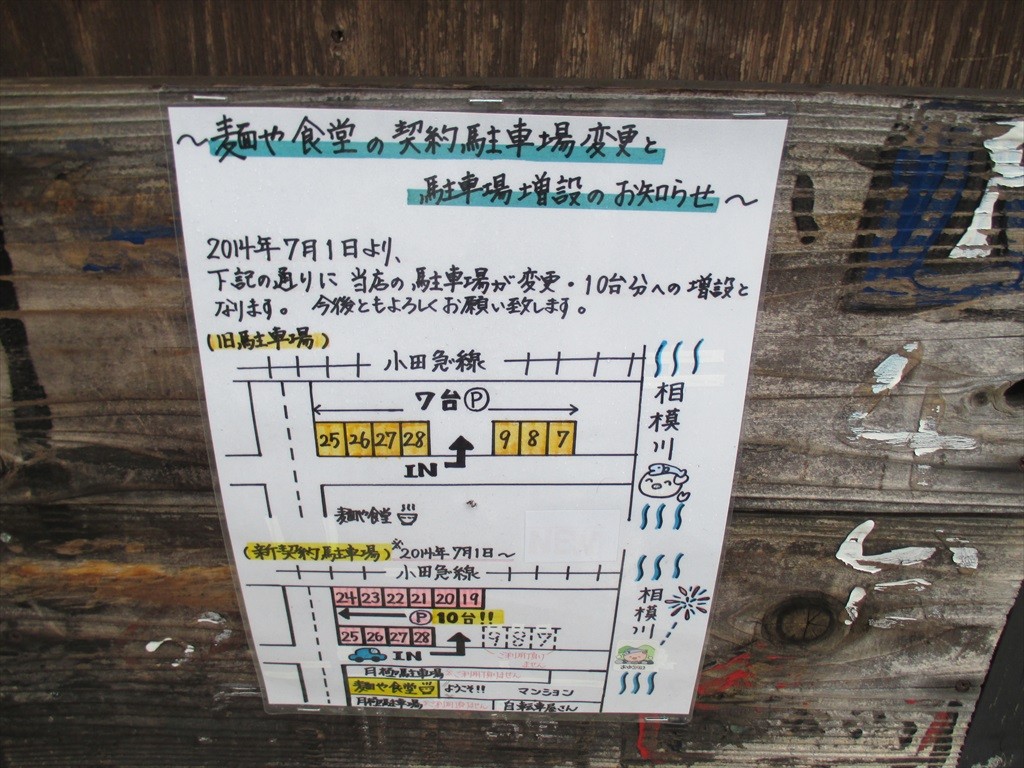 ～麺や食堂の契約駐車場変更と
駐車場増設のお知らせ～
2014年7月1日より、
下記の通りに当店の駐車場が変更・10台分への増設と
なります。今後ともよろしくお願い致します。
(旧駐車場)
小田急線
7台Ⓟ
25 26 27 28
9 8 7
IN
相模川
麺や食堂
(新契約駐車場)
※2014年7月1日～
小田急線
24 23 22 21 20 19
Ⓟ 10台!!
25 26 27 28
9 8 7
IN
ご利用頂け
ません
相模川
月極め駐車場
麺や食堂
ようこそ!!
マンション
月極め駐車場
自転車屋さん